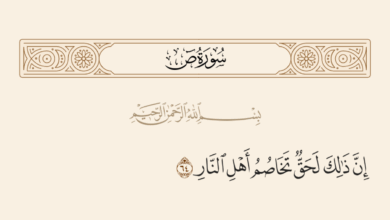 سُورَةُ صٓ
بِسْمِ ٱللَّهِ ٱلرَّحْمَٰنِ ٱلرَّحِيمِ
إِنَّ ذَٰلِكَ لَحَقٌّۭ تَخَاصُمُ أَهْلِ ٱلنَّارِ ٦٤